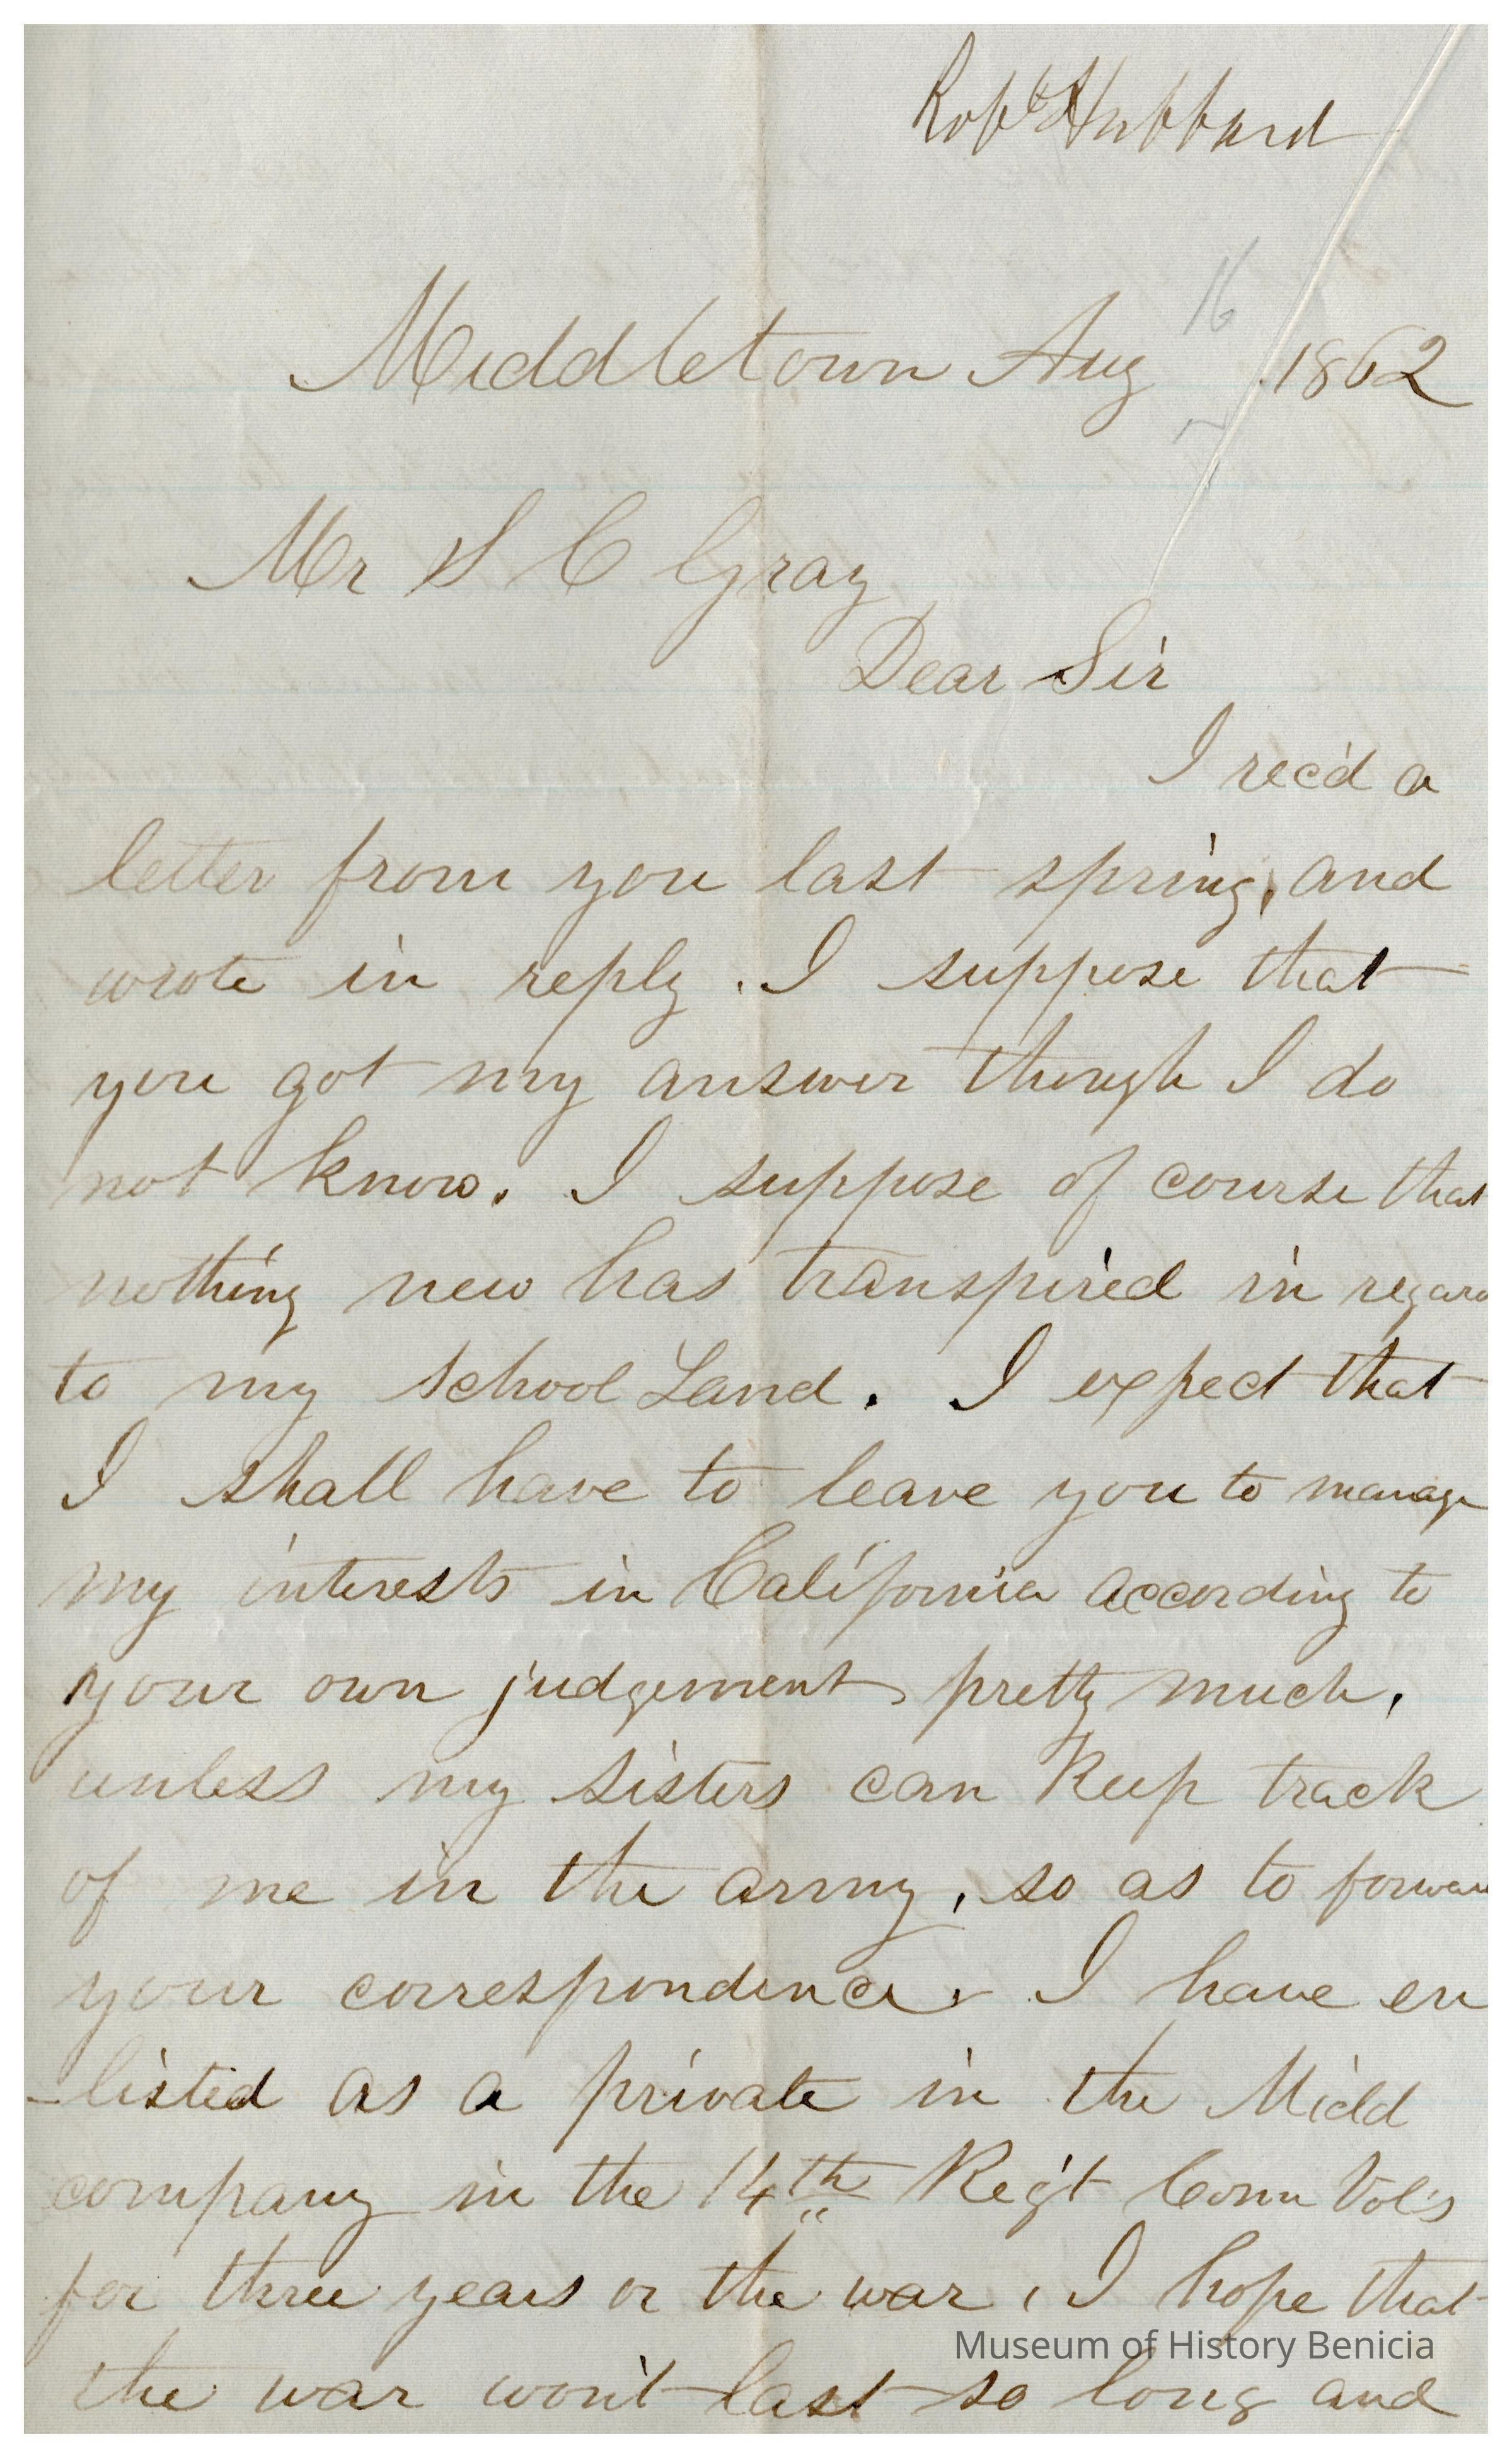 Robt Hubbard
16
Middletown Aug 1862
Mr S C Gray
Dear Sir
I rec'd a
letter from you last spring, and
wrote in reply. I suppose that
you got my answer though I do
not know. I suppose of course that
nothing new has transpired in regard
to my school Land. I expect that
I shall have to leave you to manage
my interests in California according to
your own judgement pretty much,
unless my sisters can keep track
of me in the army, so as to forward
your correspondence. I have en
-listed as a private in the Midd
company in the 14th Reg't Conn Vol's
for three years or the war, I hope that
Museum of History Benicia
the war won't last so long and